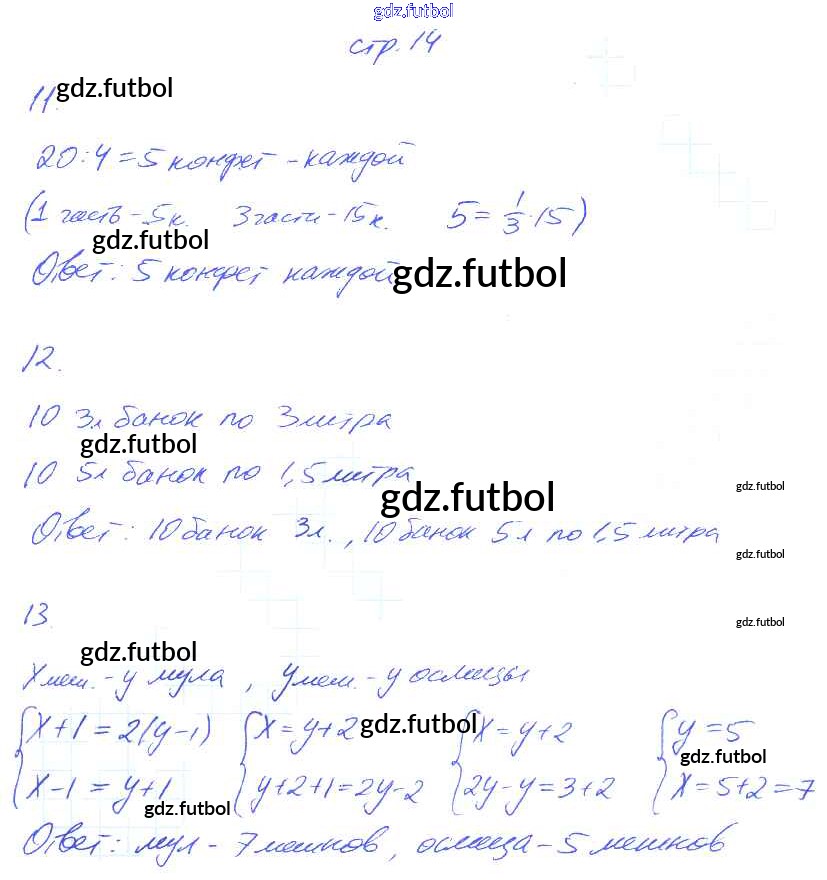 gdz.futbol
стр. 14
11. gdz.futbol
20 : 4 = 5 конфет - каждой
(1 часть - 5 к. 3 части - 15 к. 5 = 1/3 · 15)
gdz.futbol
Ответ: 5 конфет каждой gdz.futbol
12.
10 3л банок по 3 литра
gdz.futbol
10 5л банок по 1,5 литра
gdz.futbol gdz.futbol
Ответ: 10 банок 3л., 10 банок 5л по 1,5 литра
gdz.futbol
13. gdz.futbol
gdz.futbol
X меш. - у мула, y меш. - у ослицы
{ x + 1 = 2(y - 1) { x = y + 2 gdz.futbol { x = y + 2 { y = 5
gdz.futbol
x - 1 = y + 1 y + 2 + 1 = 2y - 2 2y - y = 3 + 2 x = 5 + 2 = 7
gdz.futbol
Ответ: мул - 7 мешков, ослица - 5 мешков